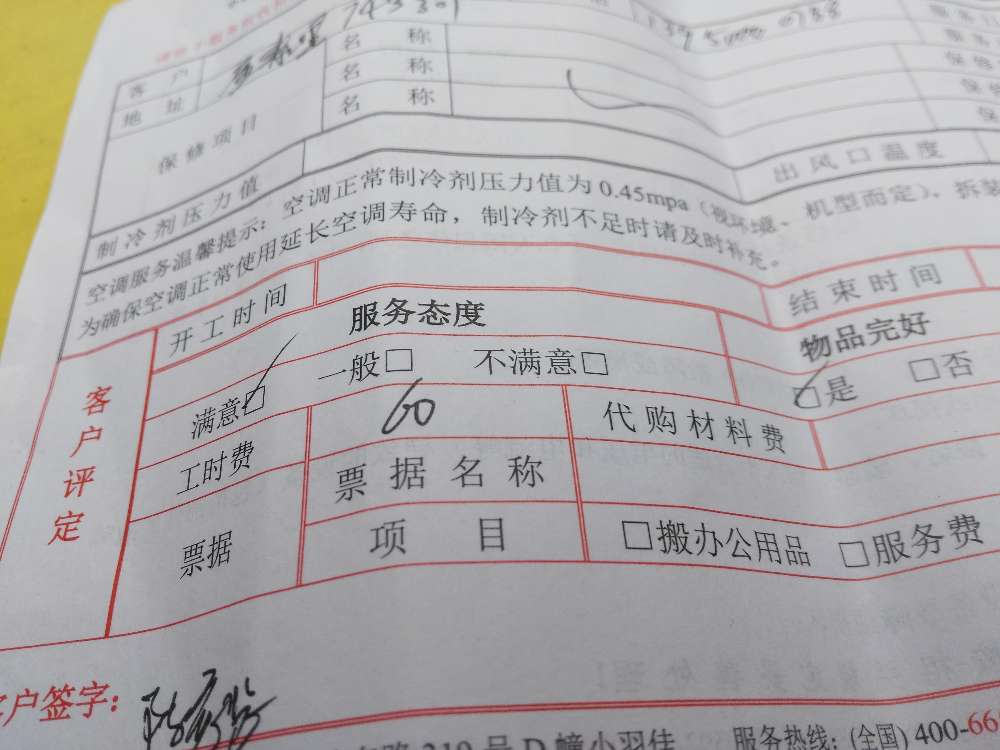 客户
地址
名称
名称
名称
保修项目
制冷剂压力值
出风口温度
空调服务温馨提示：空调正常制冷剂压力值为0.45mpa（视环境、机型而定）、拆装
为确保空调正常使用延长空调寿命，制冷剂不足时请及时补充。
开工时间
结束时间
客户评定
服务态度
物品完好
满意□ 一般□ 不满意□
□是 □否
工时费 60 代购材料费
票据
票据名称
项目
□搬办公用品 □服务费
客户签字：
219号D幢小羽佳 服务热线：(全国) 400-66